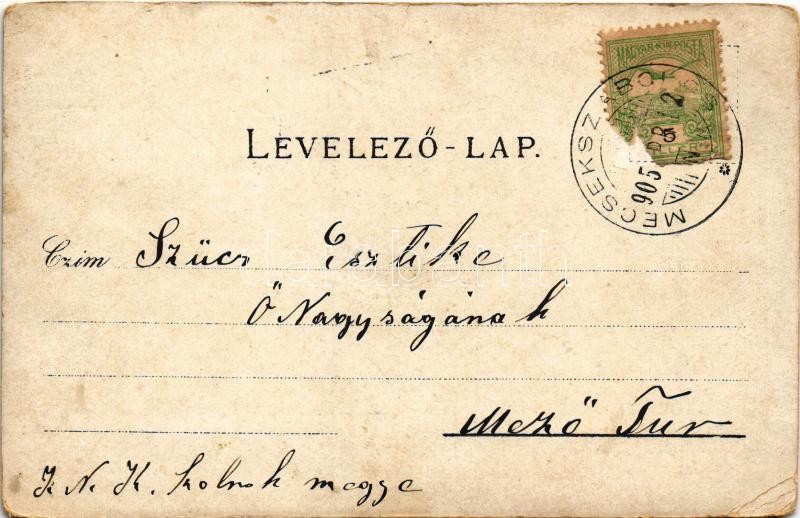 MAGYAR KIR. POSTA
MECSEKSZABOLCS
905
5
LEVELEZŐ-LAP.
Czim Szücs Esztike
Ő Nagyságának
Mező Tur
J. N. K. Szolnok megye
darabanth